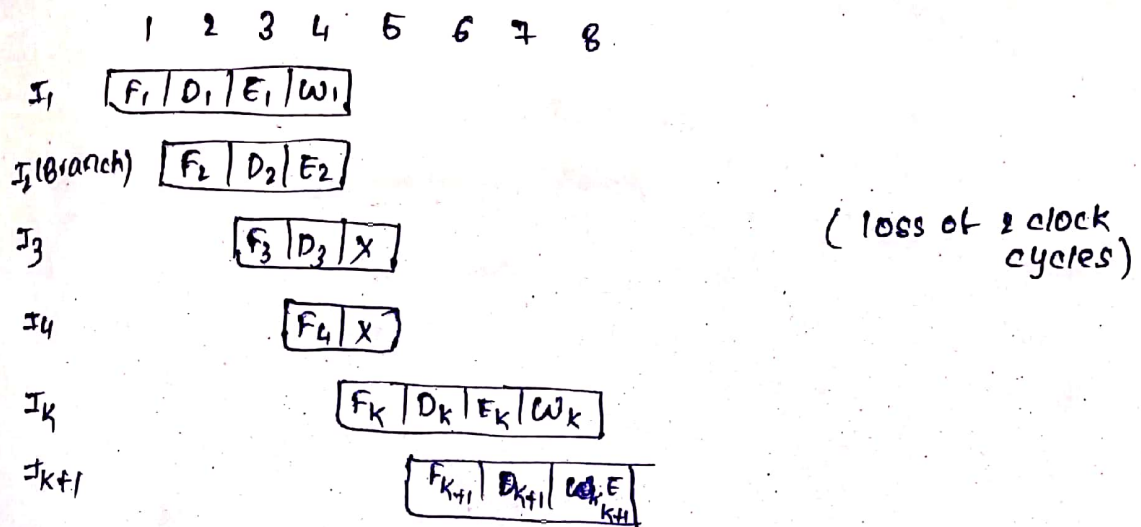 1 2 3 4 5 6 7 8
I1 F1 D1 E1 W1
I2 (Branch) F2 D2 E2
I3 F3 D3 X
(loss of 2 clock cycles)
I4 F4 X
IK FK DK EK WK
IK+1 FK+1 DK+1 EK+1